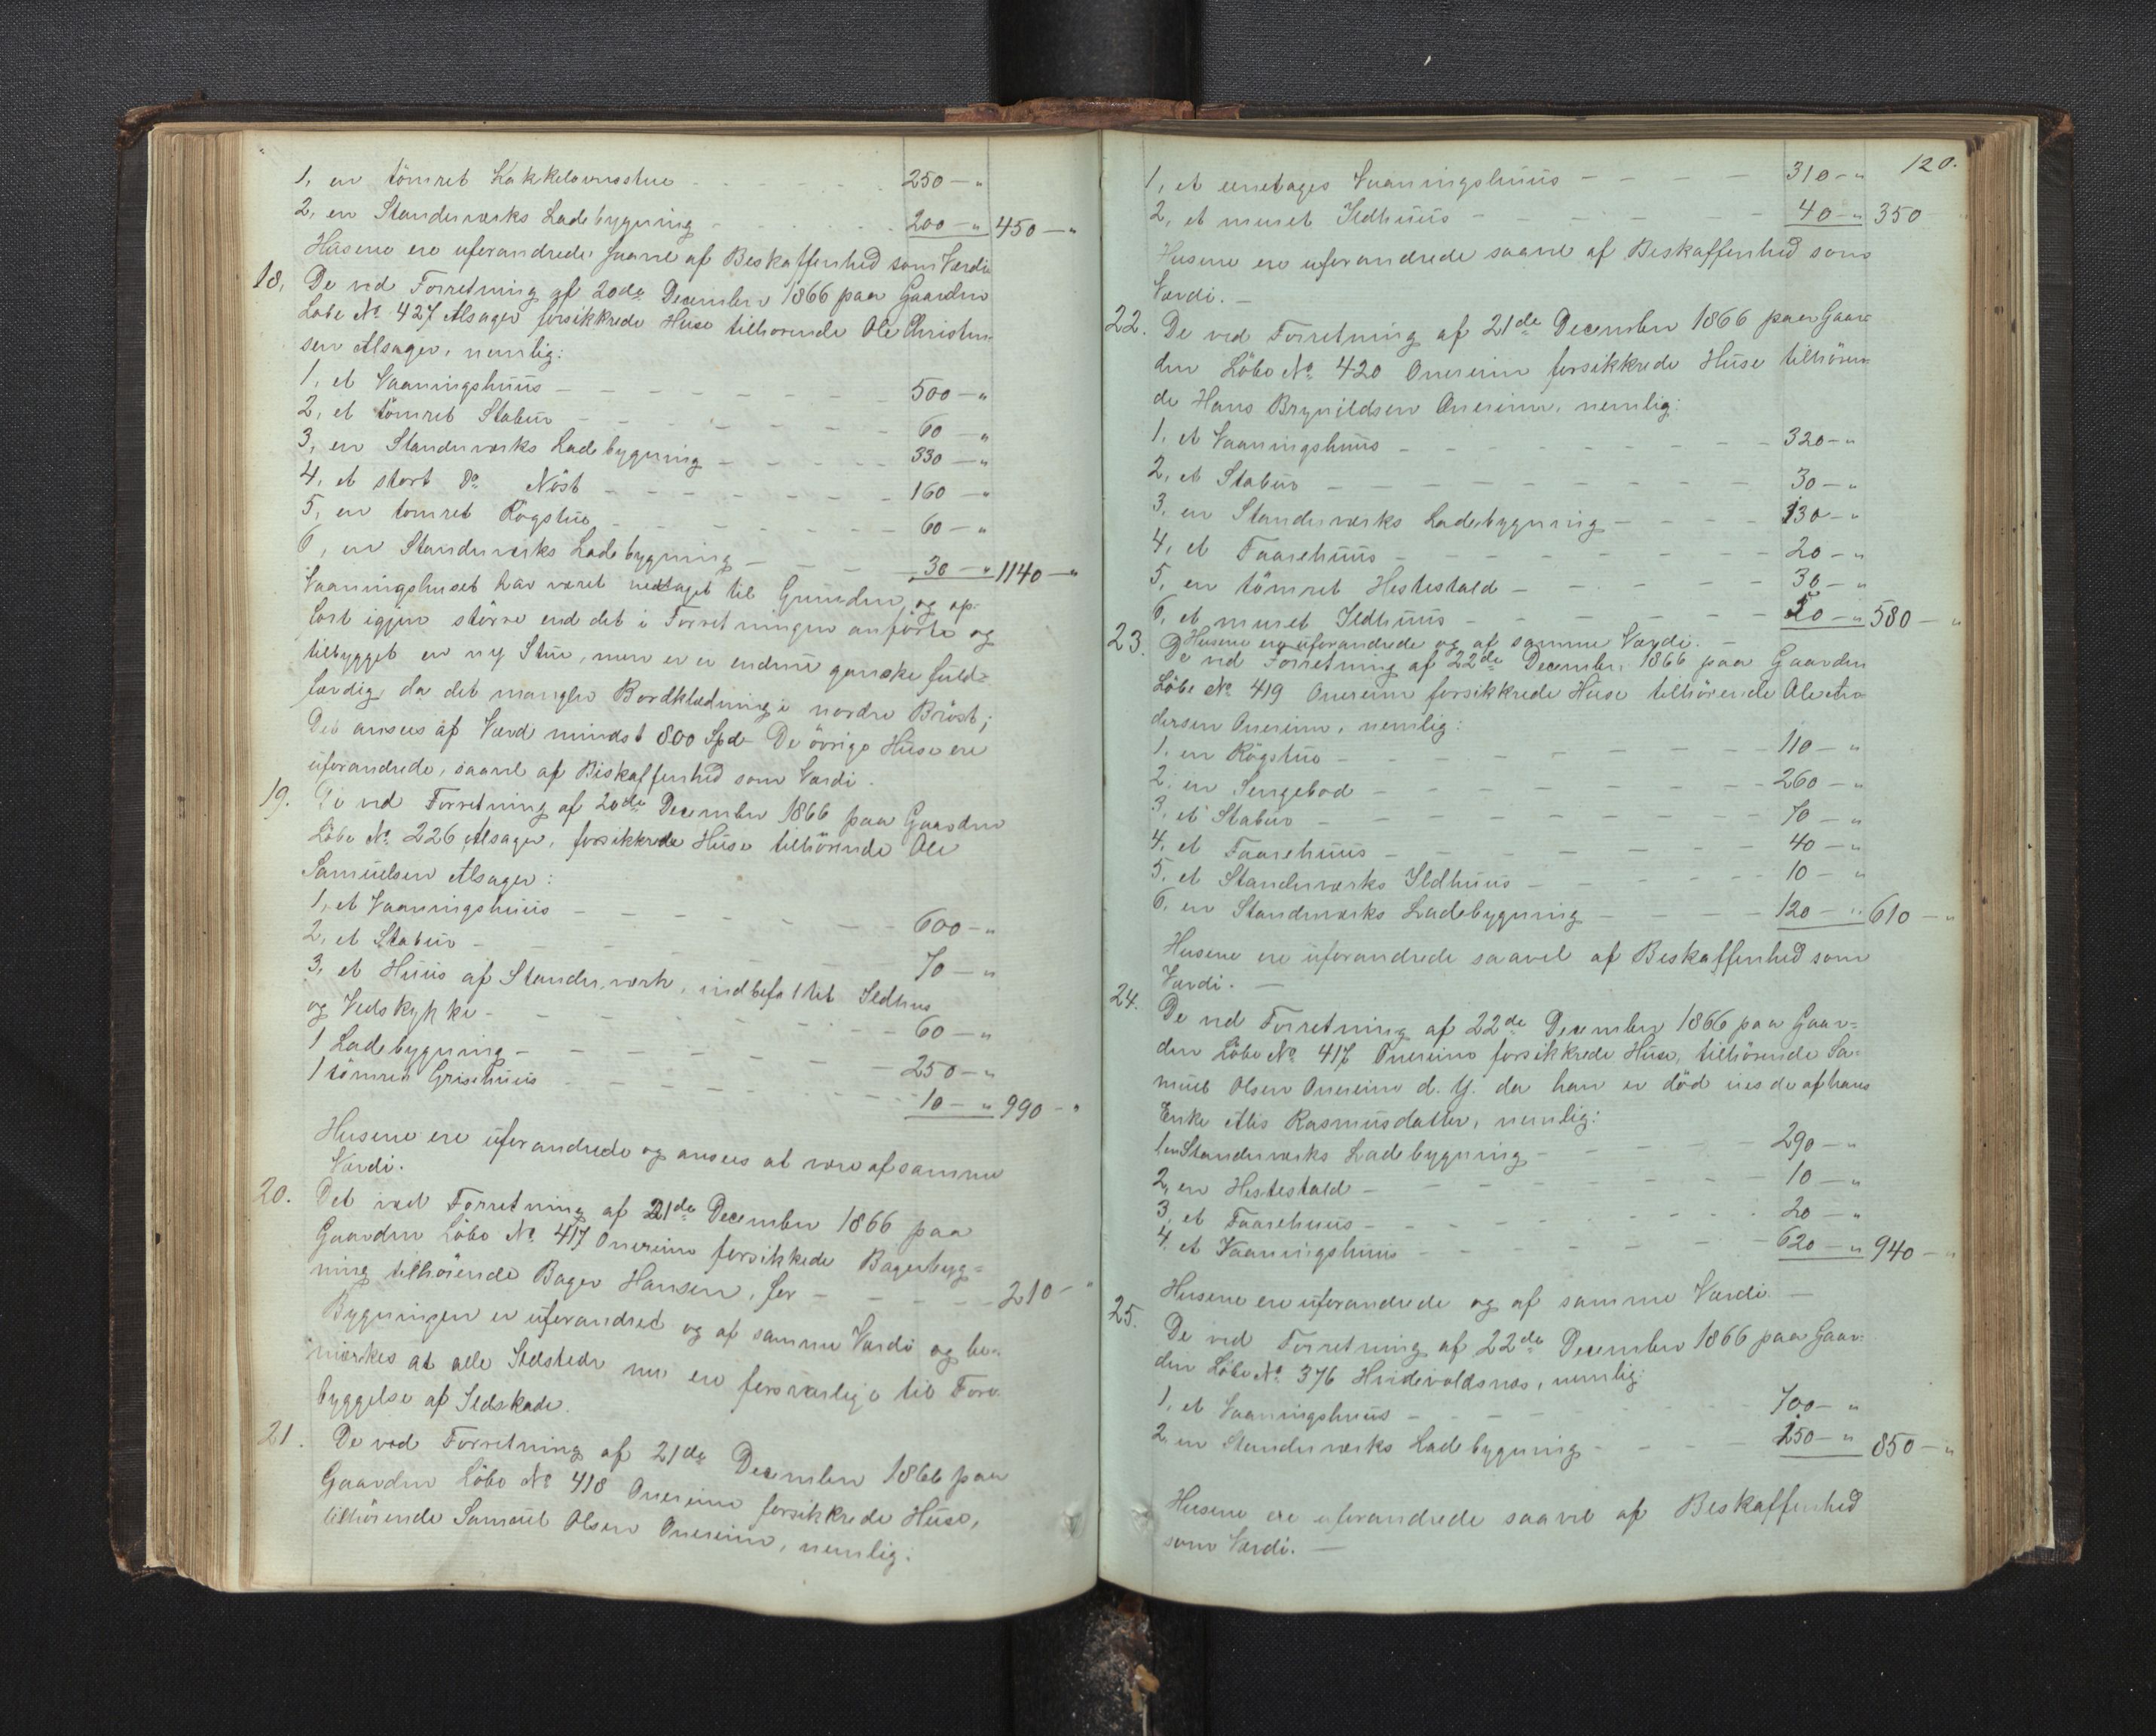 1, en tömret Kakkelovnsstue - - - 250 - "
2, en Standværks Ladebygning - - - 200 - " 450 - "
Husene ere uforandrede saavel af Beskaffenhed som Værdi
18, De ved Forretning af 20de December 1866 paa Gaarden
Löbe No 427 Alsager forsikkrede Huse tilhörende Ole Christen
sen Alsager, nemlig:
1, et Vaaningshuus - - - 500 - "
2, et tömret Stabur - - - 60 - "
3, en Standværks Ladebygning - - - 330 - "
4, et stort do Nöst - - - 160 - "
5, en tömret Rögstue - - - 60 - "
6, en Standværks Ladebygning - - - 30 - " 1140 - "
Vaaningshuset har været nedtaget til Grunden og op-
fört igjen större end det i Forretningen anförte og
tilbygget en ny Stue, men er ei endnu ganske fuld-
færdig, da det mangler Bordklædning i nordre Bröst;
Det ansees af Værd mindst 800 Spd. De övrige Huse ere
uforandrede, saavel af Beskaffenhed som Værdi.
19. De ved Forretning af 20de December 1866 paa Gaarden
Löbe No 226 Alsager, forsikkrede Huse tilhörende Ole
Samuelsen Alsager:
1, et Vaaningshuus - - - 600 - "
2, et Stabur - - - 70 - "
3, et Huus af Standværk, indbefattet Ildhus
og Vedskykke - - - 60 - "
1 Ladebygning - - - 250 - "
1 tömret Grisehuus - - - 10 - " 990 - "
Husene ere uforandrede og ansees at være af samme
Værdi.
20. Det ved Forretning af 21de December 1866 paa
Gaarden Löbe No 417 Onereim forsikkede Bagerbyg-
ning tilhörende Bager Hansen, for - - - 210 - "
Bygningen er uforandret og af samme Værdi og be-
mærkes at alle Ildsteder nu ere forsvarlige til Fore-
byggelse af Ildskade.
21. De ved Forretning af 21de December 1866 paa
Gaarden Löbe No 418 Onereim forsikkrede Huse,
tilhörende Samuel Olsen Onereim, nemlig:
120.
1, et eenetages Vaaningshuus - - - 310 - "
2, et muret Ildhuus - - - 40 - " 350
Husene ere uforandrede saavel af Beskaffenhed som
Værdi. -
22. De ved Forretning af 21de December 1866 paa Gaar-
den Löbe No 420 Onereim forsikkrede Huse tilhören-
de Hans Brynildsen Onereim, nemlig:
1, et Vaaningshuus - - - 320 - "
2, et Stabur - - - 30 - "
3, en Standværks Ladebygning - - - 130 - "
4, et Faarehuus - - - 20 - "
5, en tömret Hestestald - - - 30 - "
6, et muret Ildhuus - - - 50 - " 580 - "
Husene ere uforandrede og af samme Værdi. -
23. De ved Forretning af 22de December 1866 paa Gaarden
Löbe No 419 Onereim forsikkrede Huse tilhörende Ole An
dersen Onereim, nemlig:
1, en Rögstue - - - 110 - "
2, en Sengebod - - - 260 - "
3, et Stabur - - - 70 - "
4, et Faarehuus - - - 40 - "
5, et Standværks Ildhuus - - - 10 - "
6, en Standværks Ladebygning - - - 120 - " 610 - "
Husene ere uforandrede saavel af Beskaffenhed som
Værdi. -
24. De ved Forretning af 22de December 1866 paa Gaar-
den Löbe No 417 Onereim forsikkrede Huse, tilhörende Sa-
muel Olsen Onereim d. y. da han er död af hans
Enke Alis Rasmusdatter, nemlig:
1, en Standværks Ladebygning - - - 290 - "
2, en Hestestald - - - 10 - "
3, et Faarehuus - - - 20 - "
4, et Vaaningshuus - - - 620 - " 940 - "
Husene ere uforandrede og af samme Værdi -
25. De ved Forretning af 22de December 1866 paa Gaar-
den Löbe No 376 Hvidevoldsnæs, nemlig:
1, et Vaaningshuus - - - 700 - "
2, en Standværks Ladebygning - - - 150 - " 850 - "
Husene ere uforandrede saavel af Beskaffenhed
som Værdi. -